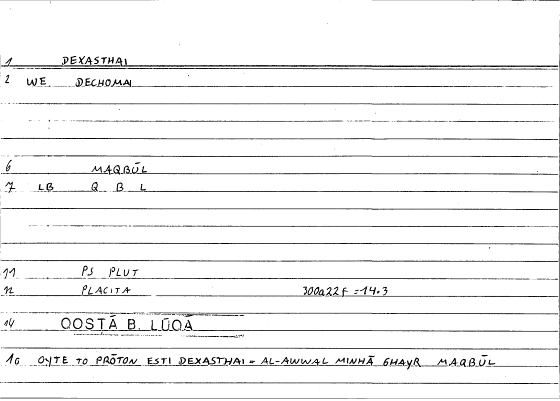 1 DEXASTHAI
2 WE. DECHOMAI
6 MAQBŪL
7 LB Q B L
11 PS PLUT
12 PLACITA 300a22f = 14.3
14 QOSTĀ B. LŪQĀ
16 OYTE TO PRŌTON ESTI DEXASTHAI = AL-AWWAL MINHĀ GHAYR MAQBŪL